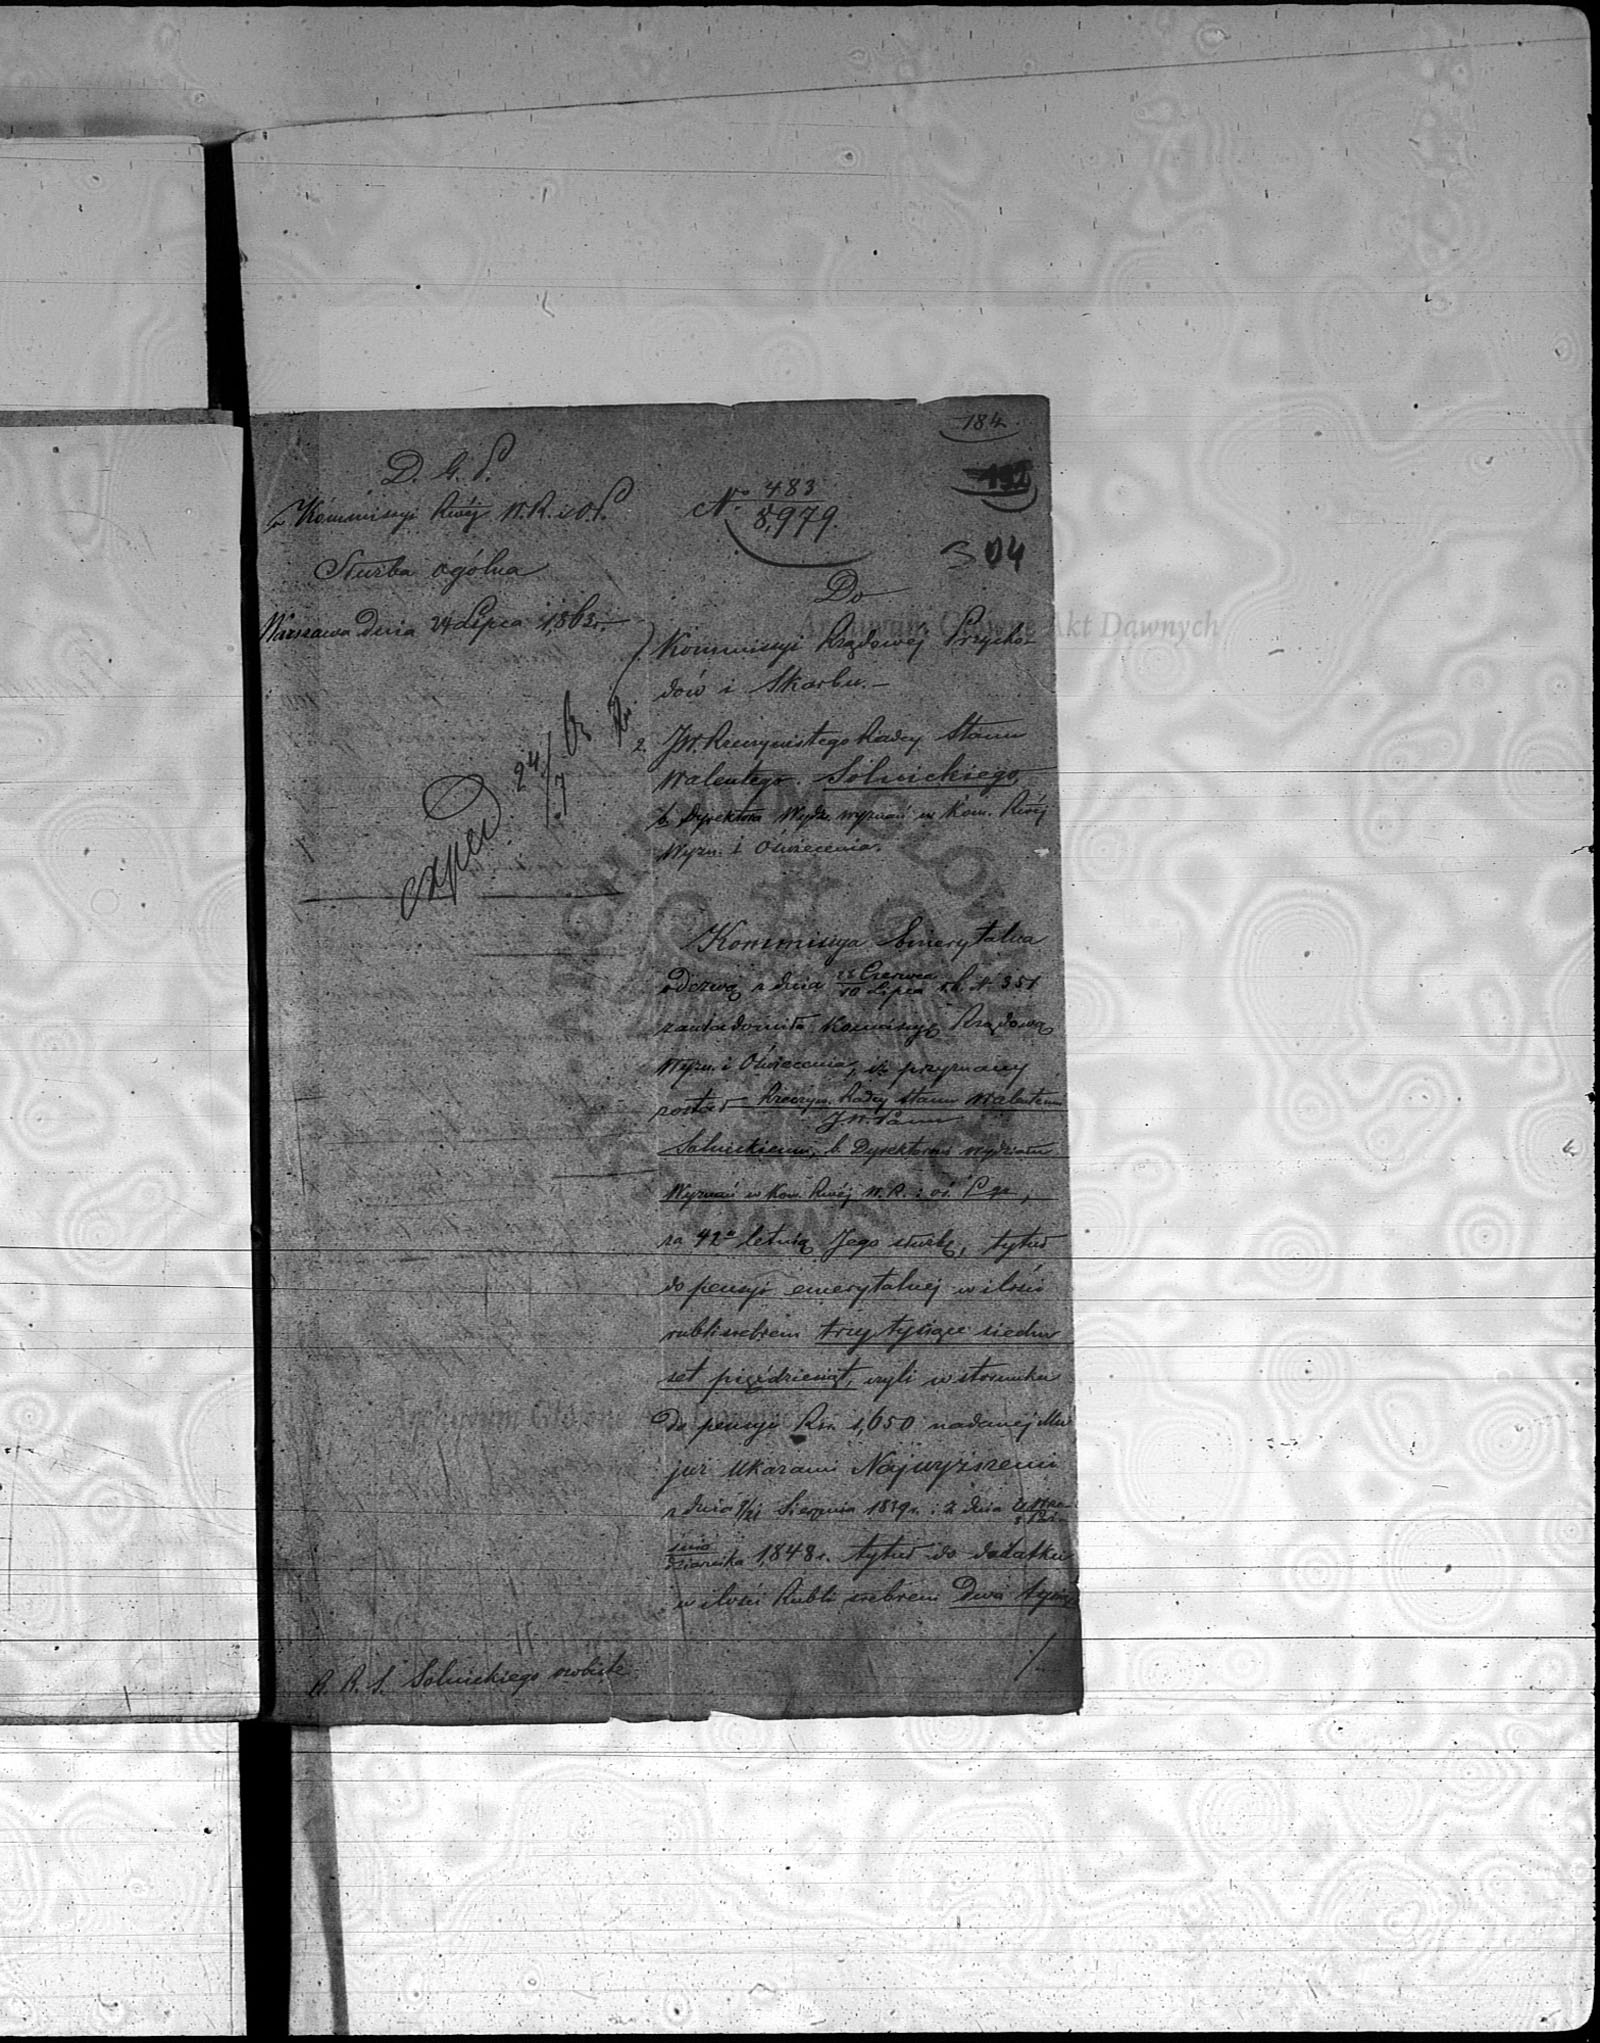 184
192
304
D. G. S.
w Kommissyi Rwéj W. R. i O. P.
Służba ogólna
Warszawa dnia 24 Lipca 1863 r.
No 483
8,979.
exped. 24/7 63
Do
Kommissyi Rządowéj Przycho-
dów i Skarbu.–
2. JW. Rzeczywistego Radcy Stanu
Walentego Sólnickiego,
b. Dyrektora Wydz. wyznań w Kom. Rwéj
Wyzn. i Oświecenia.
Kommissya Emerytalna
odezwą z dnia 28 Czerwca / 10 Lipca r. b. N. 351
zawiadomiła Kommissyę Rządową
Wyzn. i Oświecenia, iż przyznany
został Rzeczyw. Radcy Stanu Walentemu
JW. Panu
Solnickiemu, b. Dyrektorowi wydziału
Wyznań w Kom. Rwéj W. R. i Oś. P.
za 42o letnią Jego służbę, tytuł
do pensyi emerytalnéj w ilości
rubli srebrem trzy tysiące siedm
set pięćdziesiąt, czyli w stosunku
do pensyi Rsr. 1,650 nadanéj Mu
już Ukazami Najwyższemi
z dnia 9/21 Sierpnia 1839 r. i z dnia
1848 r. tytuł do dodatku
w ilości Rubli srebrem Dwa tysiące
./.
R. R. S. Solnickiego osobiste
Archiwum Główne Akt Dawnych